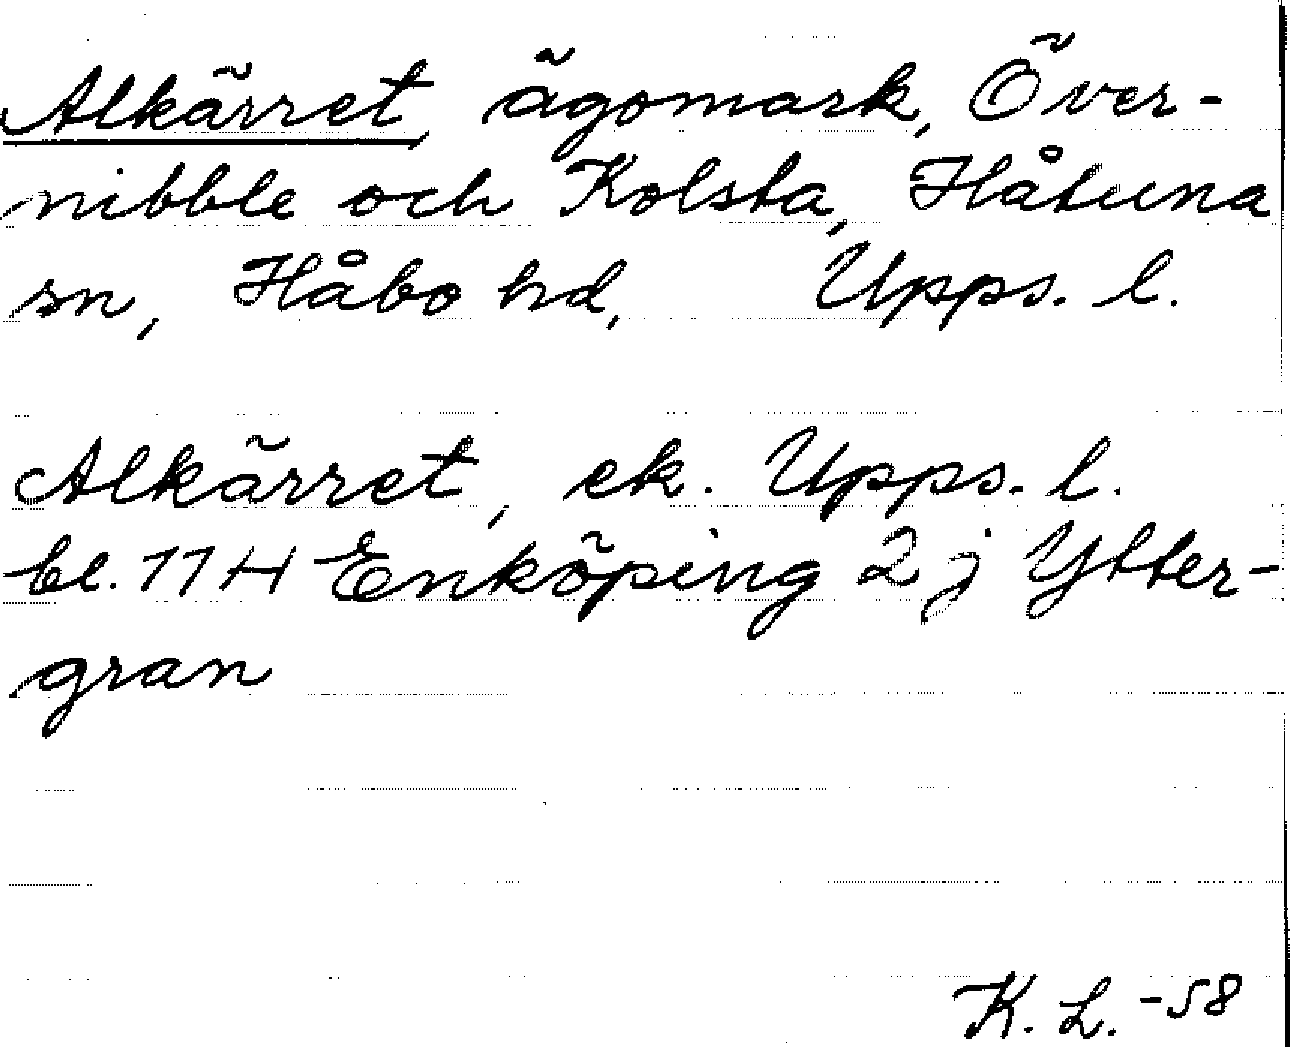 Alkärret, ägomark, Över-
nibble och Kolsta, Håtuna
sn, Håbo hd, Upps. l.
Alkärret, ek. Upps. l.
bl. 11 H Enköping 2 j Ytter-
gran
K. L. -58